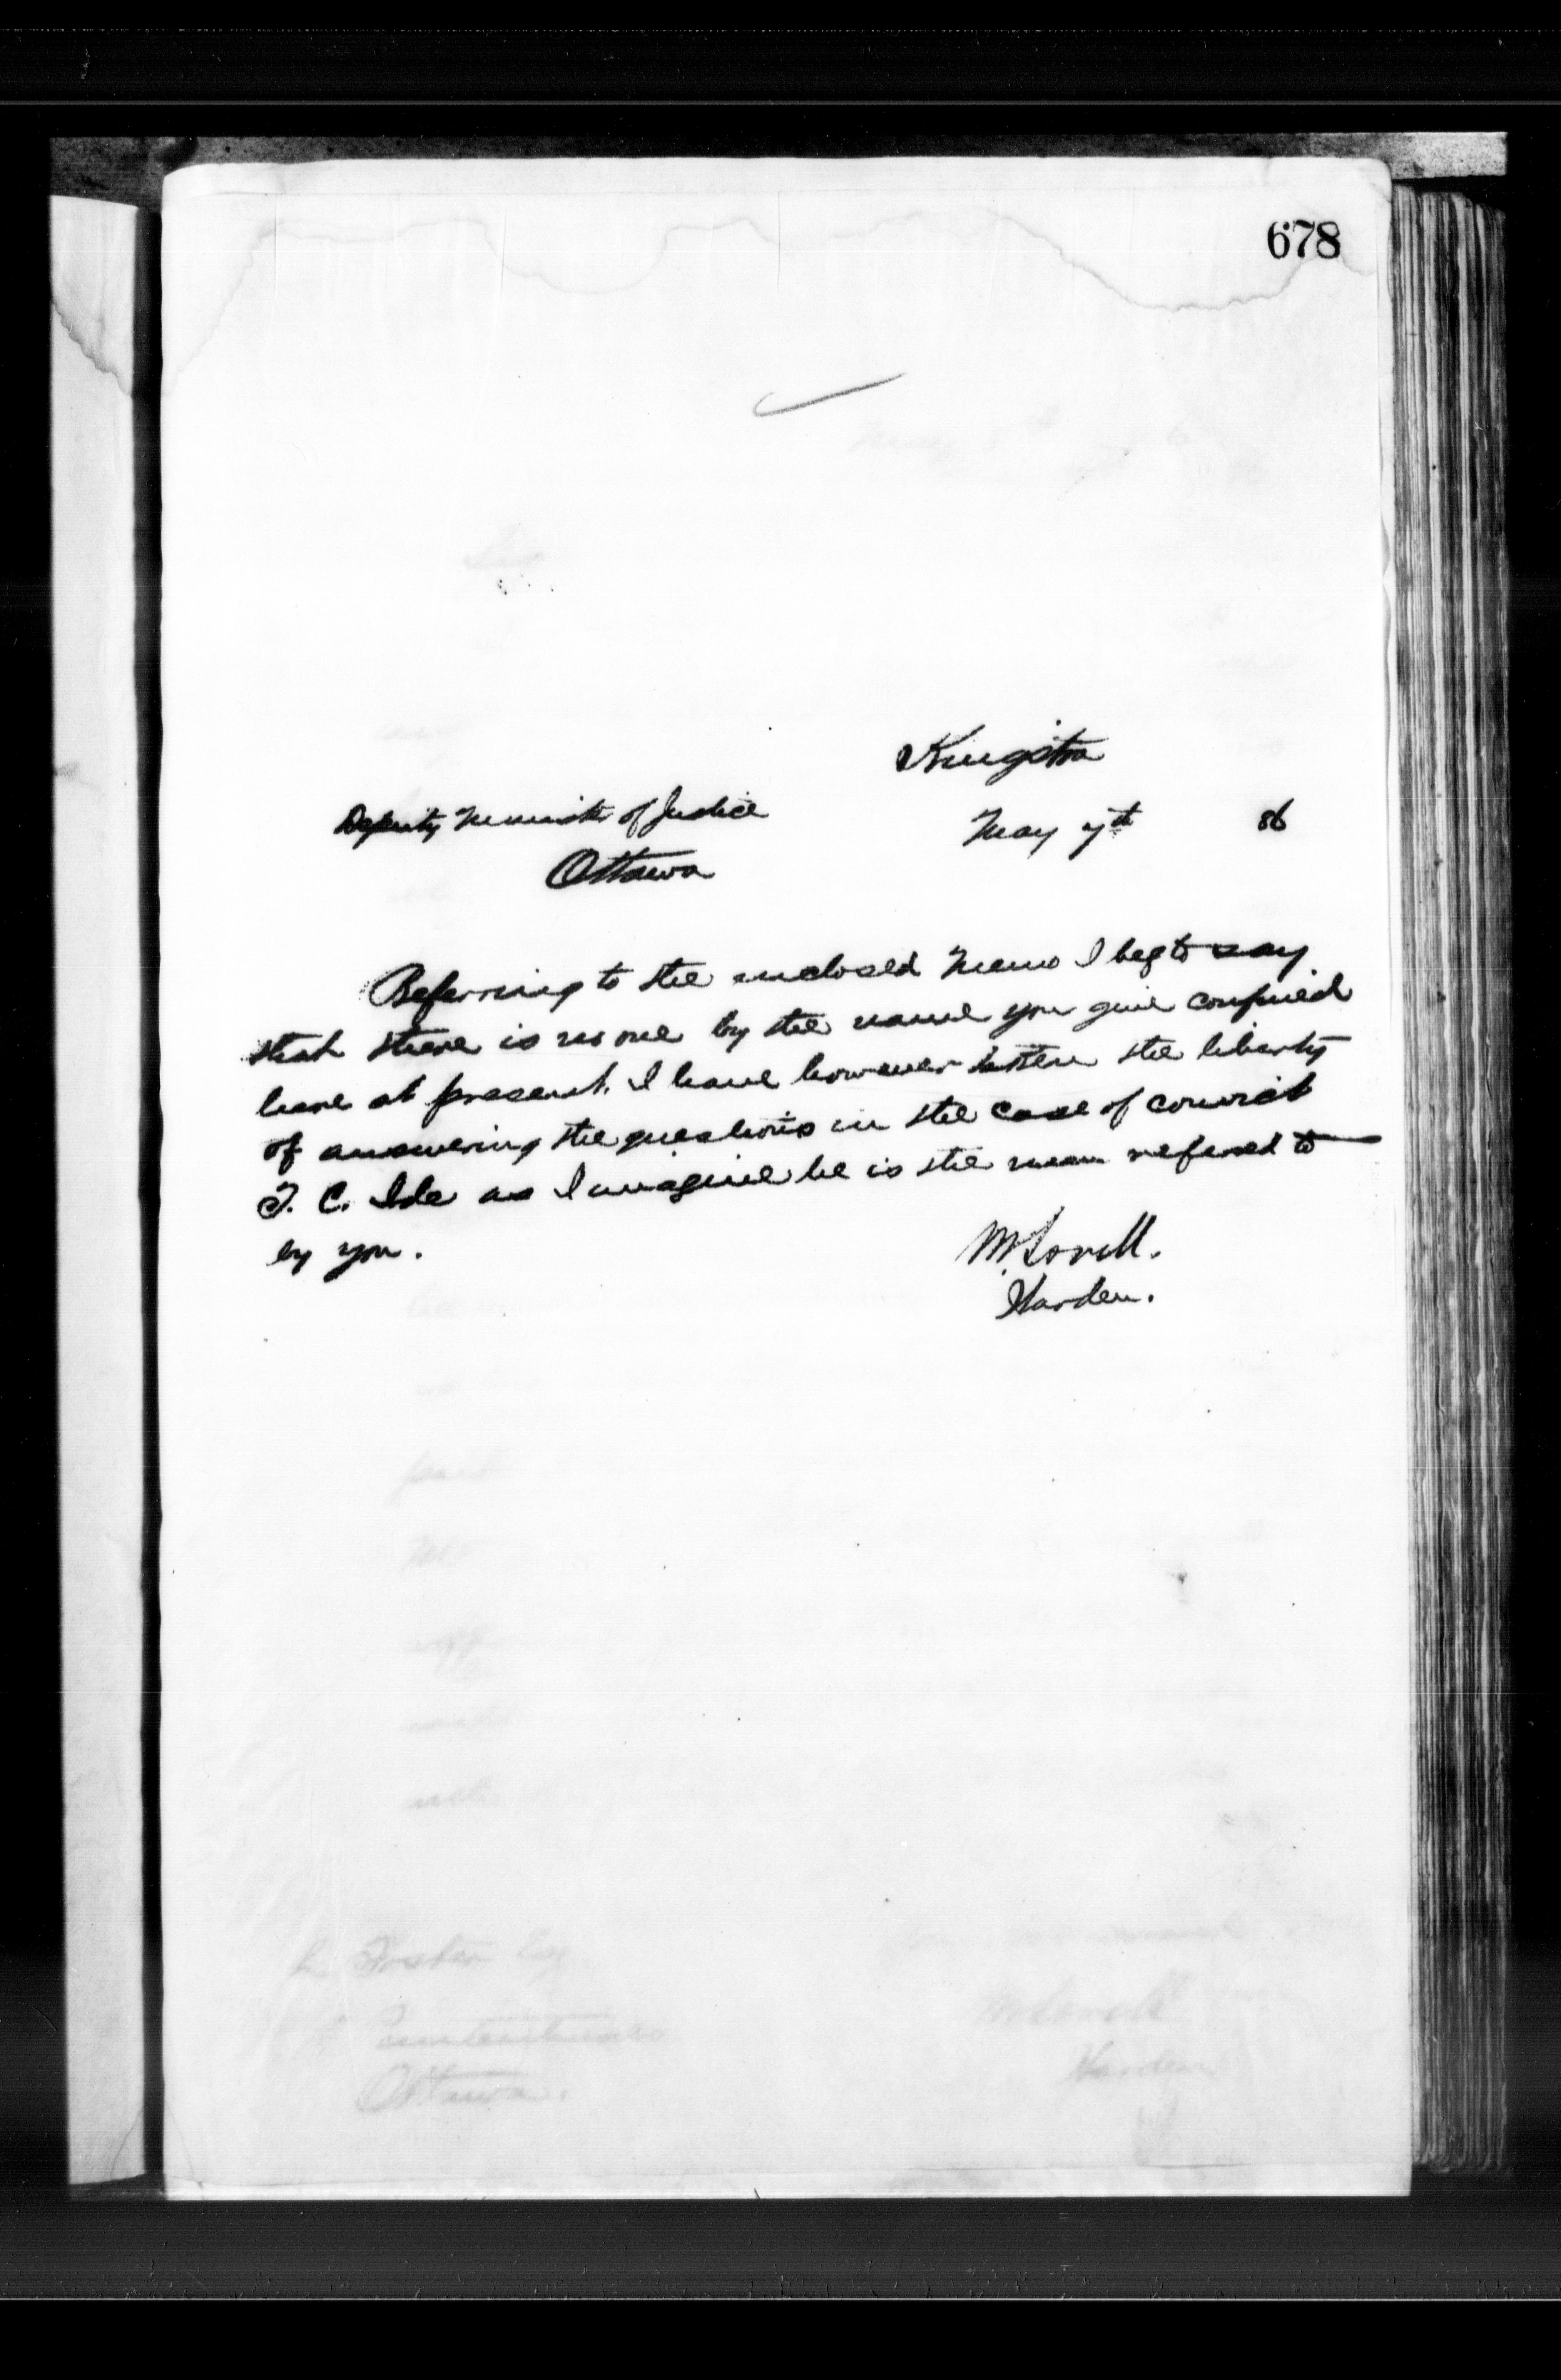 678
Kingston
Deputy Minister of Justice
May 7th 86
Ottawa
Referring to the enclosed Memo I beg to say
that there is no one by the name you give confined
here at present. I have however taken the liberty
of answering the questions in the case of convict
T. C. Ide as I imagine he is the man refered to
by you.
M Lavell.
Warden.
Foster Esq
Penitentiaries
Ottawa.
M Lavell
Warden